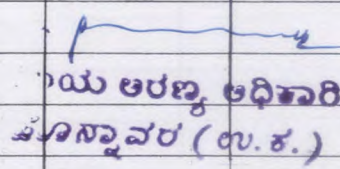 ಯ ಅರಣ್ಯ ಅಧಿಕಾರಿ
ಹೊನ್ನಾವರ (ಉ.ಕ.)